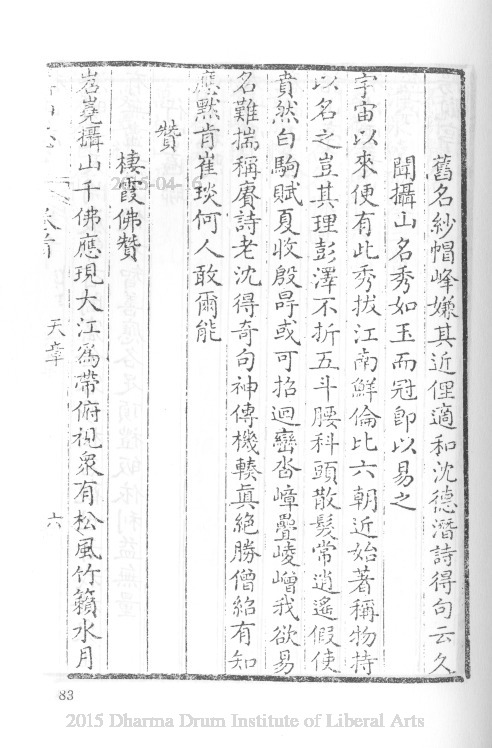 舊名紗帽峰嫌其近俚適和沈德潛詩得句云久
聞攝山名秀如玉而冠卽以易之
宇宙以來便有此秀拔江南鮮倫比六朝近始著稱物持
以名之豈其理彭澤不折五斗腰科頭散髮常逍遙假使
賁然白駒賦夏收殷冔或可招迴巒沓嶂疊崚嶒我欲易
名難揣稱賡詩老沈得奇句神傳機輳眞絕勝僧紹有知
應默肯崔琰何人敢爾能
贊
棲霞佛贊
岧嶤攝山千佛應現大江爲帶俯視衆有松風竹籟水月
卷首
天章
六
83
2015-04-10
2015 Dharma Drum Institute of Liberal Arts